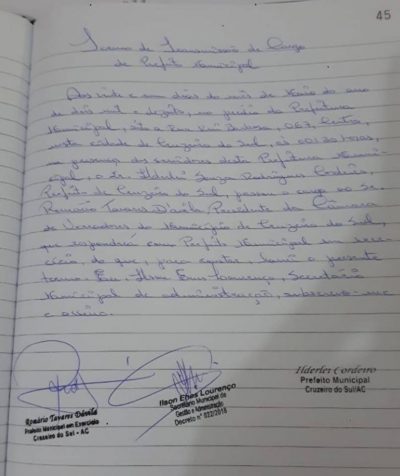 45
Termo de Transmissão de Cargo
de Prefeito Municipal
Aos vinte e um dias do mês de Maio do ano
de dois mil e dezoito, no prédio da Prefeitura
Municipal, sito a Rua Rui Barbosa, 067, Centro,
nesta cidade de Cruzeiro do Sul, às horas,
na presença dos servidores desta Prefeitura Munici-
pal, o Sr. Ilderlei Souza Rodrigues Cordeiro,
Prefeito de Cruzeiro do Sul, passou o cargo ao Sr.
Romário Tavares D'ávila, Presidente da Câmara
de Vereadores do Município de Cruzeiro do Sul,
que responderá como Prefeito Municipal em exer-
cício, do que, para constar, lavrei o presente
termo. Eu, Ilson Enes Lourenço, Secretário
Municipal de administração, subscrevo-me
e assino.
Romário Tavares Dávila
Prefeito Municipal em Exercício
Cruzeiro do Sul - AC
Ilson Enes Lourenço
Secretário Municipal de
Gestão e Administração
Decreto n° 022/2018
Ilderlei Cordeiro
Prefeito Municipal
Cruzeiro do Sul/AC